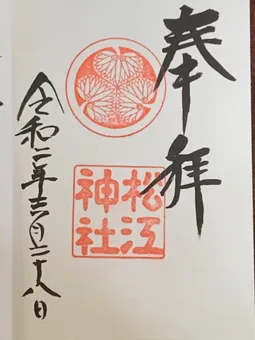 奉拝
松江
神社
令和二年十六月二十八日